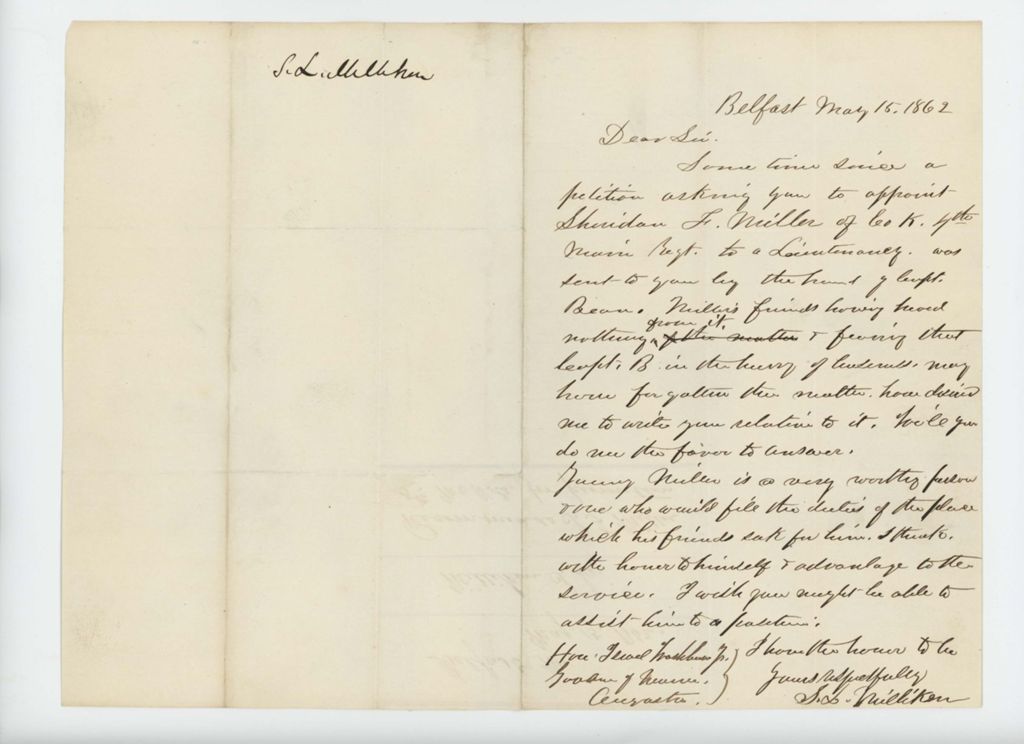 S. L. Milliken
Belfast May 15. 1862
Dear Sir.
Some time since a
petition asking you to appoint
Sheridan F. Miller of Co K. 4th
Maine Regt. to a Lieutenancy. was
sent to you by the hand of Capt.
Bean. Miller's friends having heard
from it.
nothing of the matter & fearing that
Capt. B. in the hurry of business. may
have forgotten the matter. have desired
me to write you relative to it. Will you
do me the favor to answer.
Young Miller is a very worthy person
& one who would fill the duties of the place
which his friends ask for him. I think.
with honor to himself & advantage to the
service. I wish you might be able to
assist him to a position.
Hon. Israel Washburn Jr. } I have the honor to be
Governor of Maine. Yours respectfully
Augusta. S. L. Milliken